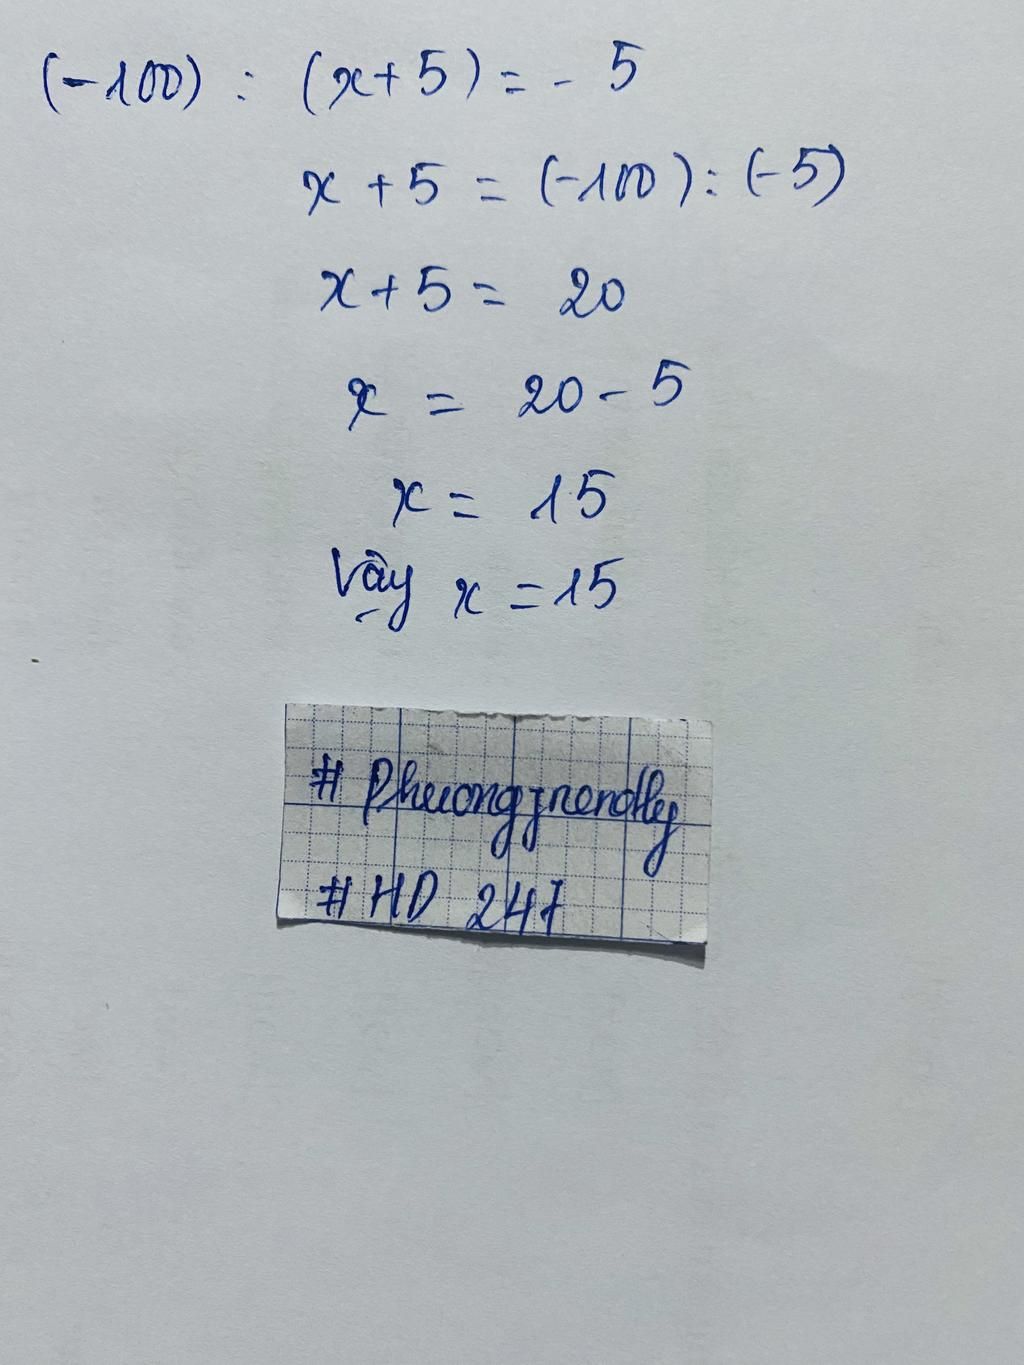 (-100) : (x+5) = - 5
x + 5 = (-100) : (-5)
x + 5 = 20
x = 20 - 5
x = 15
Vậy x = 15
# Phuongfriendly
# HD 247